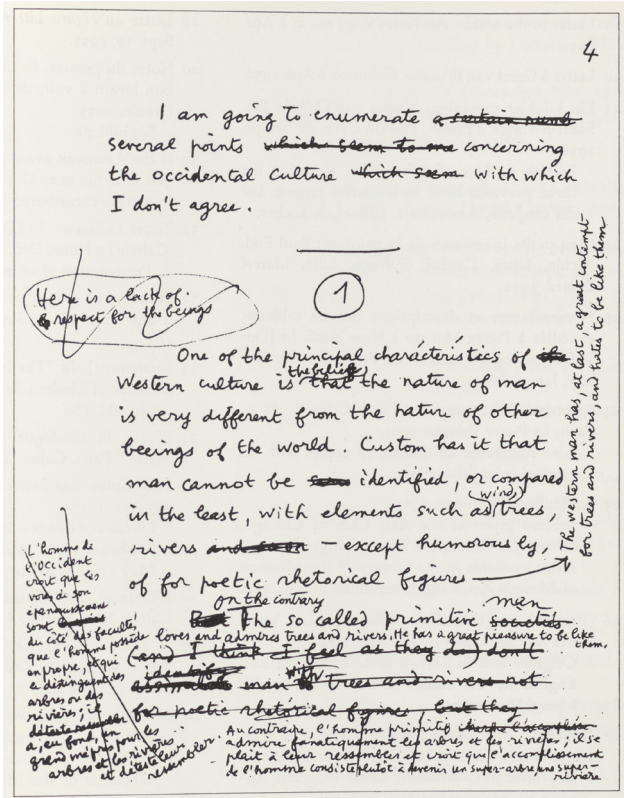 4
I am going to enumerate a certain numb
several points which seem to me concerning
the occidental culture which seem with which
I don't agree.
1
Here is a lack of
respect for the beings
One of the principal characteristics of the
Western culture is the belief that the nature of man
is very different from the nature of other
beeings of the world. Custom has it that
man cannot be identified, or compared
in the least, with elements such as wind, trees,
rivers and so on – except humorously,
of for poetic rhetorical figures
The western man has, at last, a great contempt
for trees and rivers, and hates to be like them
But on the contrary the so called primitive societies men
loves and admires trees and rivers. He has a great pleasure to be like
them.
(and I think I feel as they do) don't
assimilate identify man with trees and rivers not
for poetic rhetorical figures, but they
L'homme de
l'Occident
croit que les
voies de son
épanouissement
sont
du côté des facultés
que l'homme possède
en propre, et qui
le distinguent des
arbres ou des
rivières; il
a, au fond, un
grand mépris pour les
arbres et les rivières
et déteste leur
ressembler.
Au contraire, l'homme primitif cherche l'accomplisse
admire fanatiquement les arbres et les rivières; il se
plaît à leur ressembler et croit que l'accomplissement
de l'homme consiste plutôt à devenir un super-arbre, une super-
rivière